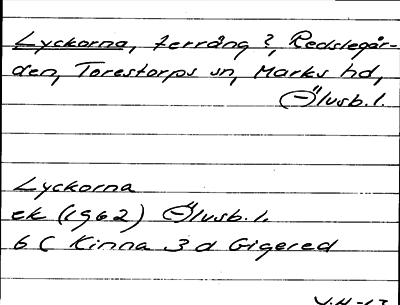 Lyckorna, terräng?, Redslegår-
den, Torestorps sn, Marks hd,
Älvsb. l.
Lyckorna
ek (1962) Älvsb. l.
6 C Kinna 3 d Gigered